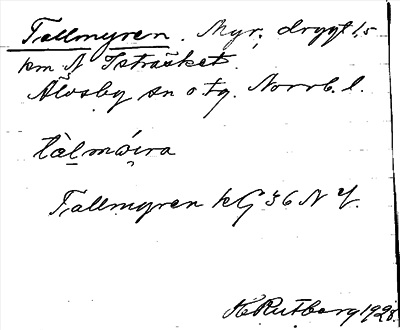 Tallmyren. Myr, drygt 1.5
km N Isträsket.
Älvsby sn o tg. Norrb. l.
tàl̲mǿi̭ra
Tallmyren kG 36 N Y.
H Rutberg 1928.